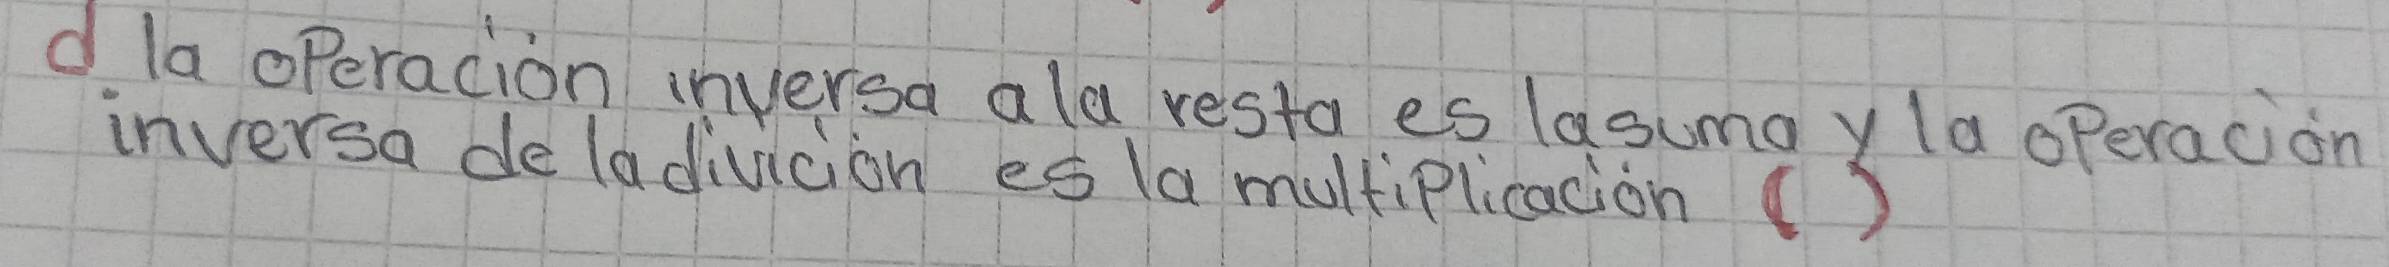 d la operación inversa ala resta es lasuma y la operación
inversa de la divición es la multiplicación ( )